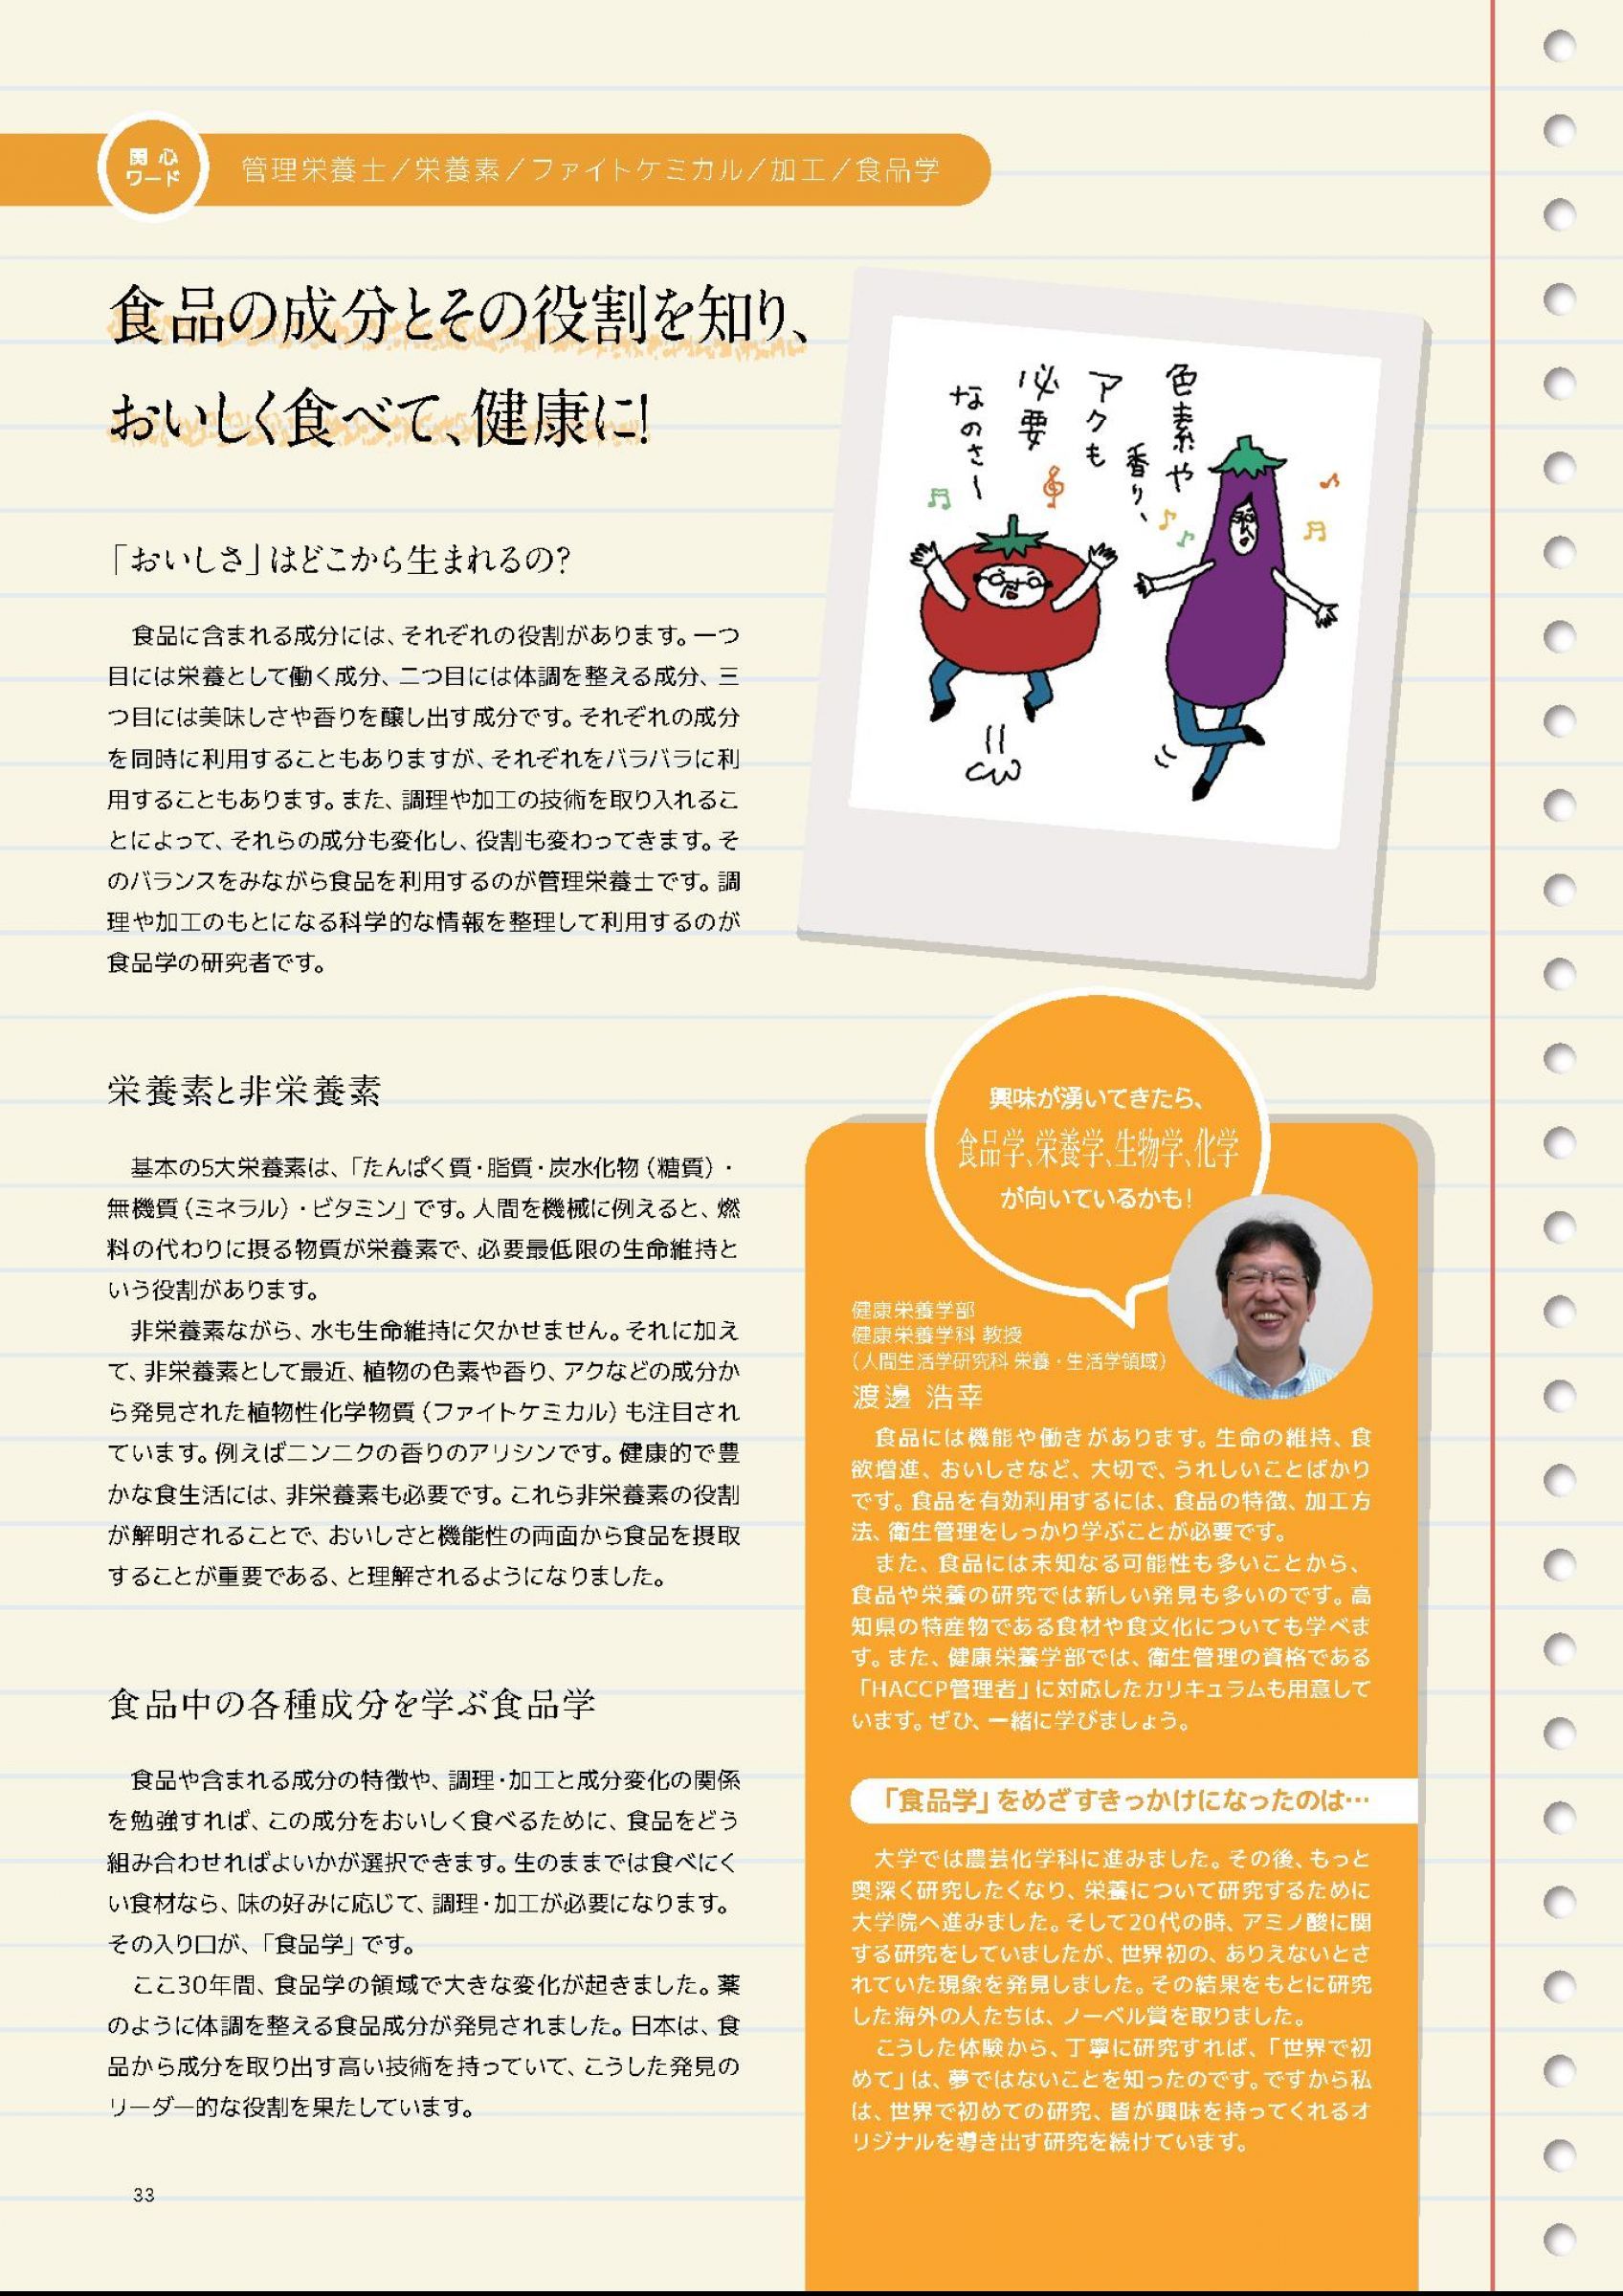 関心
ワード
管理栄養士／栄養素／ファイトケミカル／加工／食品学
食品の成分とその役割を知り、
おいしく食べて、健康に!
「おいしさ」はどこから生まれるの?
食品に含まれる成分には、それぞれの役割があります。一つ
目には栄養として働く成分、二つ目には体調を整える成分、三
つ目には美味しさや香りを醸し出す成分です。それぞれの成分
を同時に利用することもありますが、それぞれをバラバラに利
用することもあります。また、調理や加工の技術を取り入れるこ
とによって、それらの成分も変化し、役割も変わってきます。そ
のバランスをみながら食品を利用するのが管理栄養士です。調
理や加工のもとになる科学的な情報を整理して利用するのが
食品学の研究者です。
栄養素と非栄養素
基本の5大栄養素は、「たんぱく質・脂質・炭水化物（糖質）・
無機質（ミネラル）・ビタミン」です。人間を機械に例えると、燃
料の代わりに摂る物質が栄養素で、必要最低限の生命維持と
いう役割があります。
非栄養素ながら、水も生命維持に欠かせません。それに加え
て、非栄養素として最近、植物の色素や香り、アクなどの成分か
ら発見された植物性化学物質（ファイトケミカル）も注目され
ています。例えばニンニクの香りのアリシンです。健康的で豊
かな食生活には、非栄養素も必要です。これら非栄養素の役割
が解明されることで、おいしさと機能性の両面から食品を摂取
することが重要である、と理解されるようになりました。
食品中の各種成分を学ぶ食品学
食品や含まれる成分の特徴や、調理・加工と成分変化の関係
を勉強すれば、この成分をおいしく食べるために、食品をどう
組み合わせればよいかが選択できます。生のままでは食べにく
い食材なら、味の好みに応じて、調理・加工が必要になります。
その入り口が、「食品学」です。
ここ30年間、食品学の領域で大きな変化が起きました。薬
のように体調を整える食品成分が発見されました。日本は、食
品から成分を取り出す高い技術を持っていて、こうした発見の
リーダー的な役割を果たしています。
33
色素や
香り、
アクも
必要
なのさー
興味が湧いてきたら、
食品学、栄養学、生物学、化学
が向いているかも!
健康栄養学部
健康栄養学科 教授
（人間生活学研究科 栄養・生活学領域）
渡邊 浩幸
食品には機能や働きがあります。生命の維持、食
欲増進、おいしさなど、大切で、うれしいことばかり
です。食品を有効利用するには、食品の特徴、加工方
法、衛生管理をしっかり学ぶことが必要です。
また、食品には未知なる可能性も多いことから、
食品や栄養の研究では新しい発見も多いのです。高
知県の特産物である食材や食文化についても学べま
す。また、健康栄養学部では、衛生管理の資格である
「HACCP管理者」に対応したカリキュラムも用意して
います。ぜひ、一緒に学びましょう。
「食品学」をめざすきっかけになったのは…
大学では農芸化学科に進みました。その後、もっと
奥深く研究したくなり、栄養について研究するために
大学院へ進みました。そして20代の時、アミノ酸に関
する研究をしていましたが、世界初の、ありえないとさ
れていた現象を発見しました。その結果をもとに研究
した海外の人たちは、ノーベル賞を取りました。
こうした体験から、丁寧に研究すれば、「世界で初
めて」は、夢ではないことを知ったのです。ですから私
は、世界で初めての研究、皆が興味を持ってくれるオ
リジナルを導き出す研究を続けています。